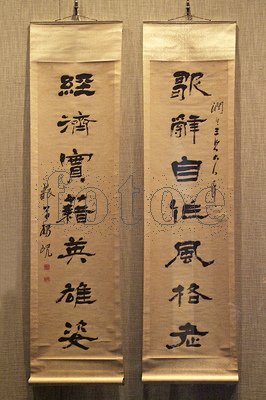 歌辭自作風格老
經濟實藉英雄姿
fotoe